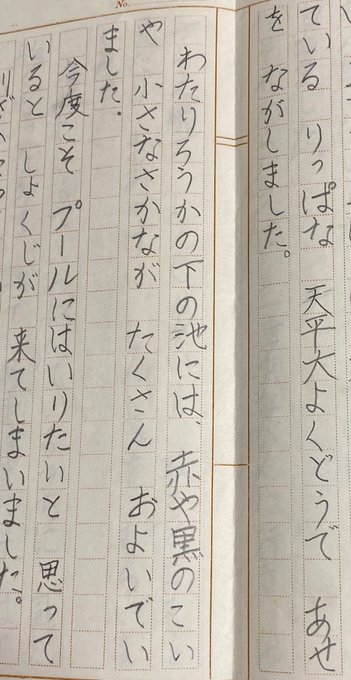 ている りっぱな 天平大よくどうで あせ
を ながしました。
わたりろうかの下の池には、赤や黒のこい
や 小さなさかなが たくさん およいでい
ました。
今度こそ プールにはいりたいと 思って
いると しょくじが 来てしまいました。